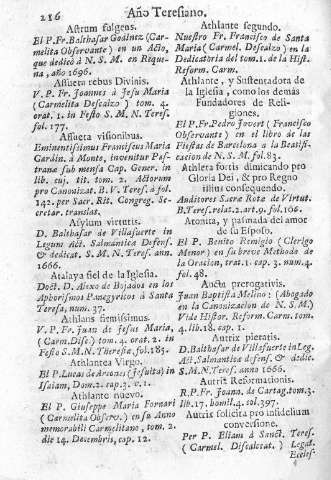 216 Año Teresiano.
Astrum fulgens.
El P. Fr. Balthasar Godinez (Carmelita Observante) en un Acto,
que dedicò à N. S. M. en Requena, año 1696.
Assueta rebus Divinis.
V. P. Fr. Joannes à Jesu Maria
(Carmelita Descalzo) tom. 4.
orat. 1. in Festo S. N. M. Teres.
fol. 177.
Assueta visionibus.
Eminentissimus Franciscus Maria
Cardin. à Monte, invenitur Pastranæ sub mensa Cap. Gener. in
lib. cuj. tit. tom. 2. Actorum
pro Canonizat. B. V. Teres. à fol.
142. per Sacr. Rit. Congreg. Secretar. translat.
Asylum virtutis.
D. Balthasar de Villafuerte in
Legum Act. Salmantica Defens.
& dedicat. S. M. N. Teres. ann.
1666.
Atalaya fiel de la Iglesia.
Doct. D. Alexo de Bojados en los
Aphorismos Panegyricos à Santa
Teresa, num. 37.
Athlans firmissimus.
V. P. Fr. Juan de Jesus Maria,
(Carm. Disc.) tom. 4. orat. 2. in
Festo S. M. N. Theresia, fol. 185.
Athlantea Virgo.
El P. Lucas de Arcones (Jesuita) in
Isaiam, Dom. 2. cap. 3. v. 1.
Athlante nuevo.
El P. Giuseppe Maria Fornari
(Carmelita Observ.) en su Anno
memorabili Carmelitano, tom. 2.
die 14. Decembris, cap. 12.
Athlante segundo.
Nuestro Fr. Francisco de Santa
Maria (Carmel. Descalzo) en la
Dedicatoria del tom. 1. de la Hist.
Reform. Carm.
Athlante, y Sustentadora de
la Iglesia, como los demás
Fundadores de Religiones.
El P. Fr. Pedro Jovert (Francisco
Observante) en el libro de las
Fiestas de Barcelona a la Beatificacion de N. S. M. fol. 83.
Athleta fortis dimicando pro
Gloria Dei, & pro Regno
illius consequendo.
Auditores Sacra Rota de Virtut.
B. Teres. relat. 2. art. 9. fol. 106.
Atonita, y pasmada del amor
de su Esposo.
El P. Benito Remigio (Clerigo
Menor) en su breve Methodo de
la Oracion, trat. 1. cap. 3. num. 4.
fol. 48.
Aucta prerogativis.
Juan Baptista Melino: (Abogado
en la Canonizacion de N. S. M.)
Vide Histor. Reform. Carm. tom.
4. lib. 18. cap. 1.
Autrix pietatis.
D. Balthasar de Villafuerte in Leg.
Act. Salmantica defens. & dedic.
S. M. N. Teres. anno 1666.
Autrix Reformationis.
R. P. Fr. Joann. de Cartag. tom. 3.
lib. 17. homil. 4. fol. 397.
Autris solicita pro infidelium
conversione.
Per P. Eliam à Sanct. Teres.
(Carmel. Discalceat.) Legat.
Eccles-